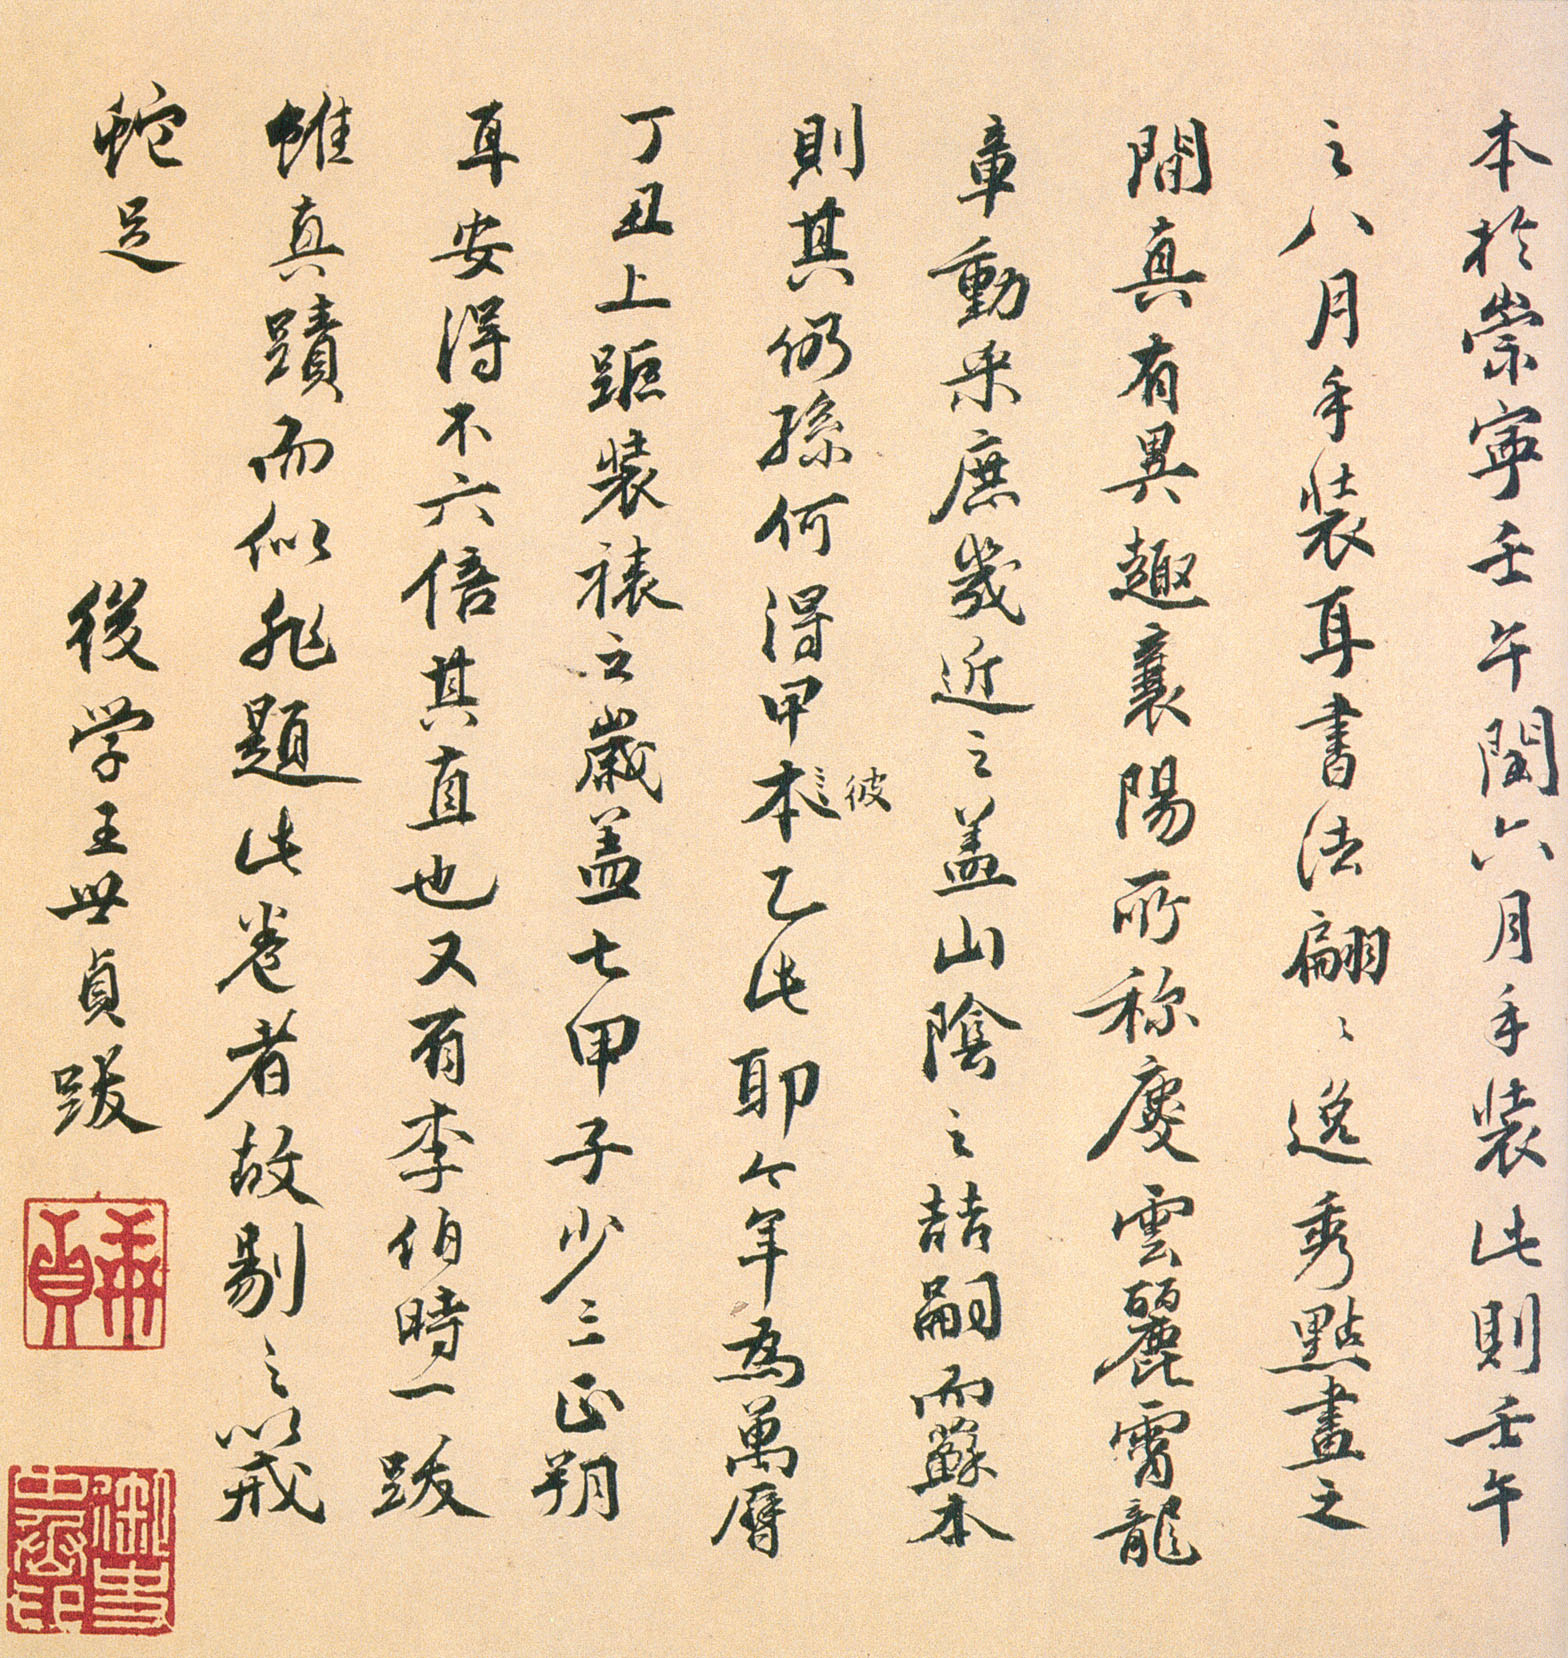 本於崇寧壬午閏六月手裝此則壬午
之八月手裝耳書法翩〻逸秀點畫之
間真有異趣襄陽所称慶雲麗霄龍
章動采庶幾近之盖山陰之喆嗣而蘇本
則其仍孫何得甲本〻乙此耶今年為萬曆
彼
丁丑上距裝裱之歲盖七甲子少三正朔
耳安得不六倍其直也又有李伯時一跋
雖真蹟而似非題此卷者故剔之以戒
蛇足
後学王世貞跋